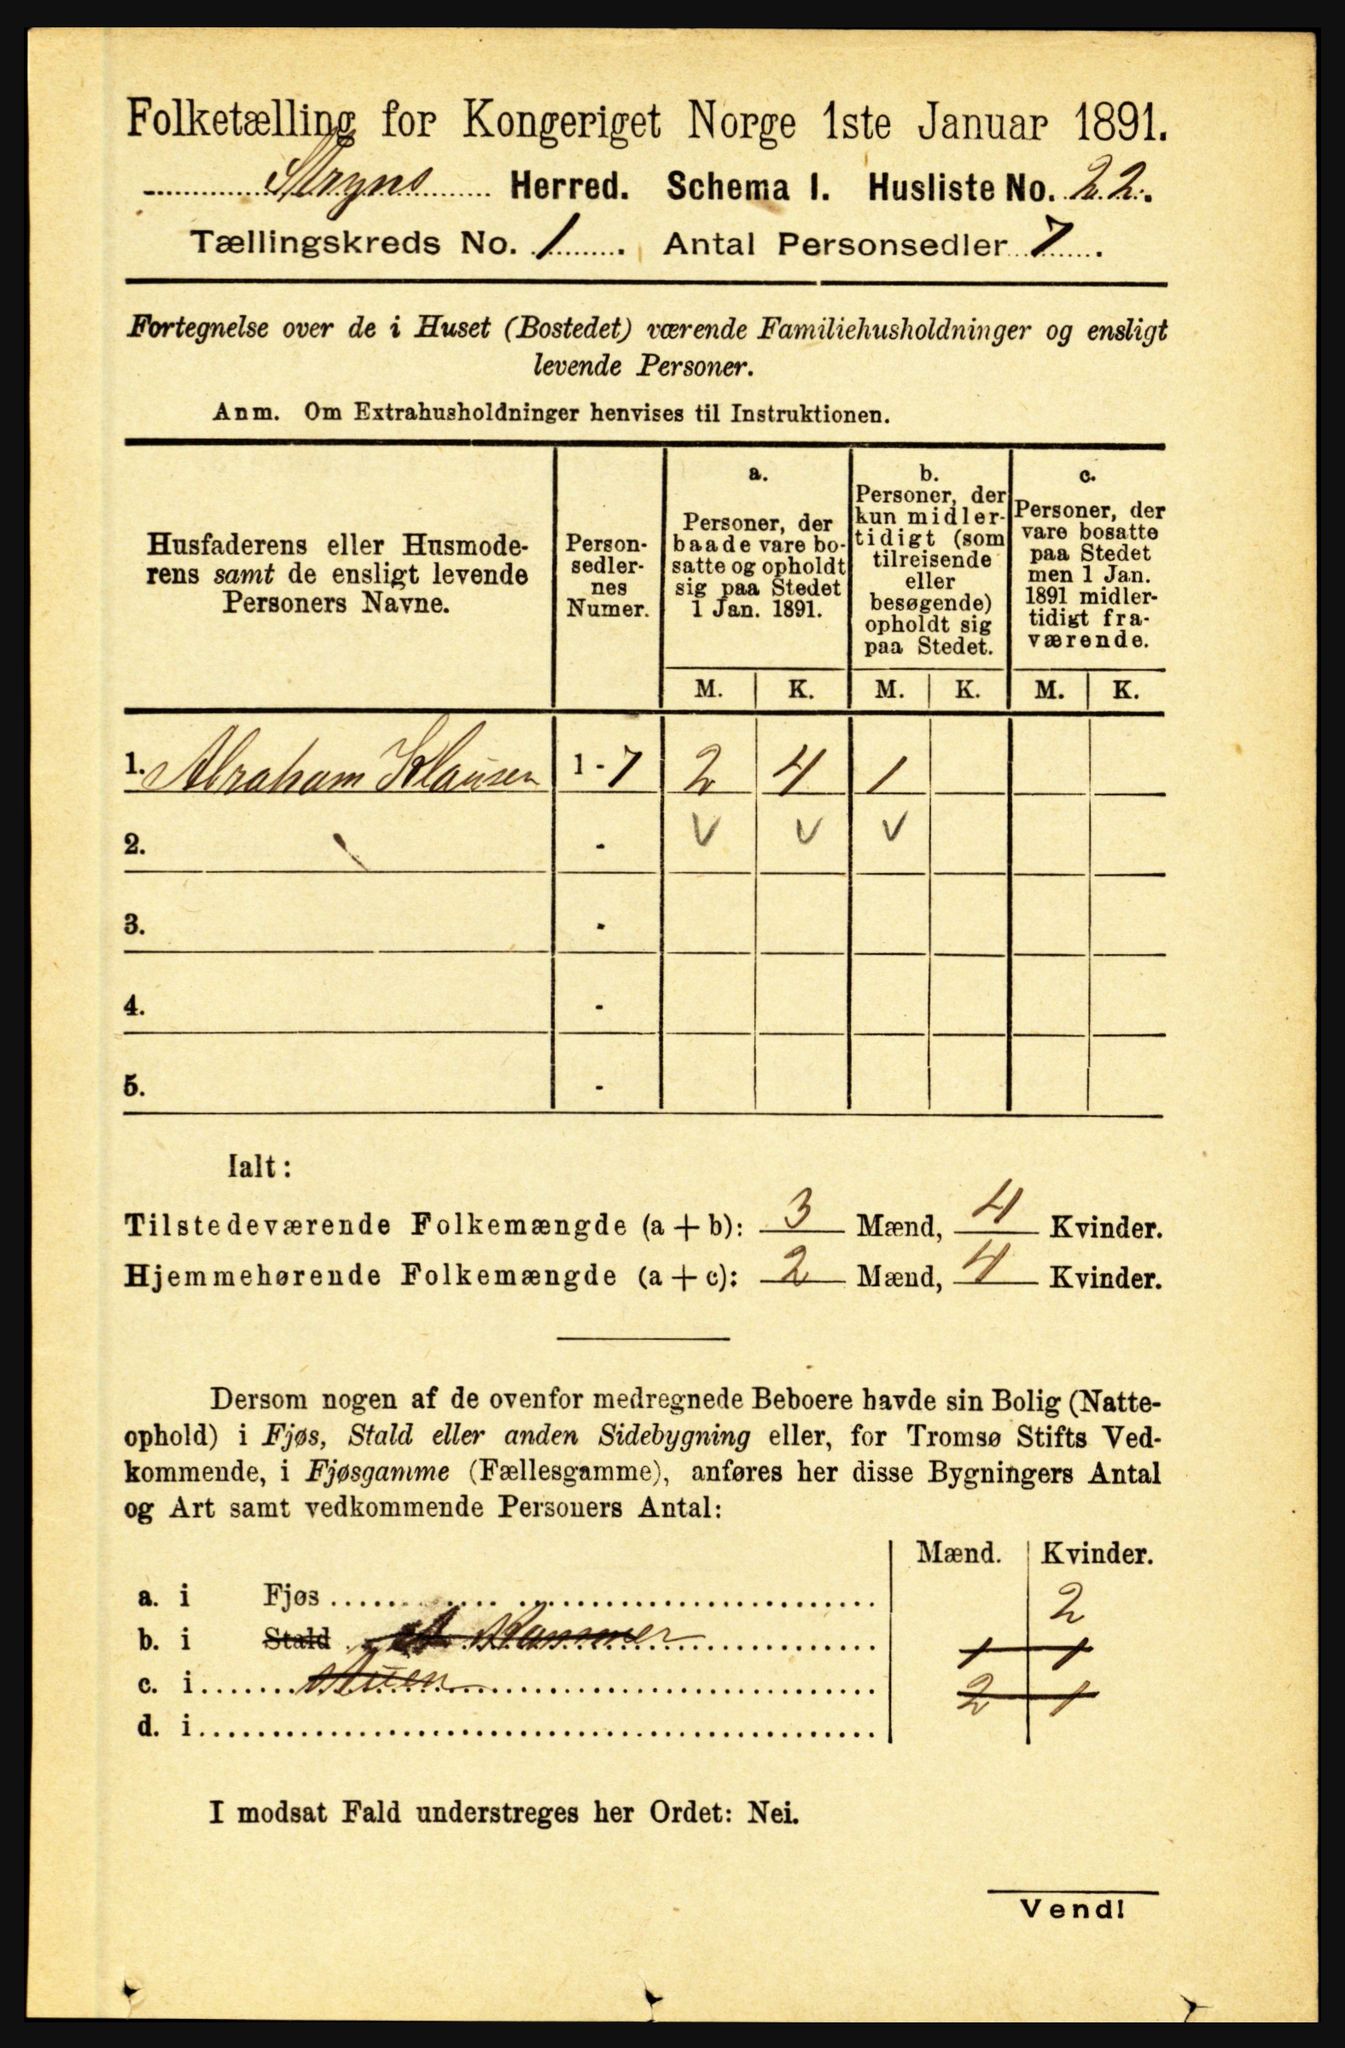 Folketælling for Kongeriget Norge 1ste Januar 1891.
Stryns Herred. Schema I. Husliste No. 22.
Tællingskreds No. 1. Antal Personsedler 7.
Fortegnelse over de i Huset (Bostedet) værende Familiehusholdninger og ensligt
levende Personer.
Anm. Om Extrahusholdninger henvises til Instruktionen.
Husfaderens eller Husmode-
rens samt de ensligt levende
Personers Navne.
Person-
sedler-
nes
Numer.
a.
Personer, der
baade vare bo-
satte og opholdt
sig paa Stedet
1 Jan. 1891.
b.
Personer, der
kun midler-
tidigt (som
tilreisende
eller
besøgende)
opholdt sig
paa Stedet.
c.
Personer, der
vare bosatte
paa Stedet
men 1 Jan.
1891 midler-
tidigt fra-
værende.
M. K. M. K. M. K.
1. Abraham Klausen 1 - 7 2 4 1
2. - V V V
3. -
4. -
5. -
Ialt:
Tilstedeværende Folkemængde (a + b): 3 Mænd, 4 Kvinder.
Hjemmehørende Folkemængde (a + c): 2 Mænd, 4 Kvinder.
Dersom nogen af de ovenfor medregnede Beboere havde sin Bolig (Natte-
ophold) i Fjøs, Stald eller anden Sidebygning eller, for Tromsø Stifts Ved-
kommende, i Fjøsgamme (Fællesgamme), anføres her disse Bygningers Antal
og Art samt vedkommende Personers Antal:
Mænd. Kvinder.
a. i Fjøs 2
b. i Stald et Kammer 1 1
c. i Stuen 2 1
d. i
I modsat Fald understreges her Ordet: Nei.
Vend!